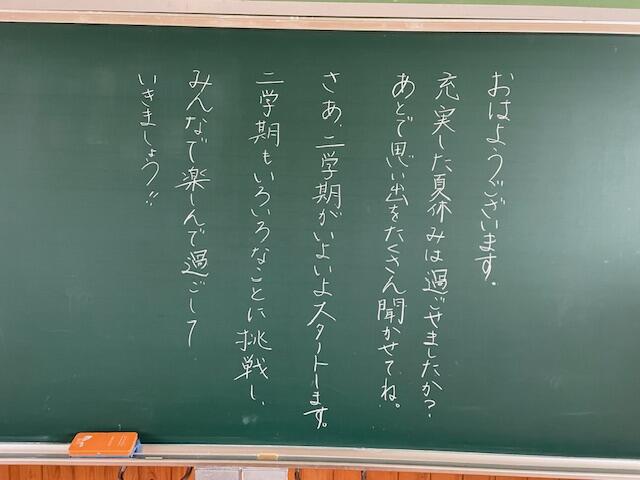 おはようございます。
充実した夏休みは過ごせましたか?
あとで思い出をたくさん聞かせてね。
さあ、二学期がいよいよスタートします。
二学期もいろいろなことに挑戦し、
みんなで楽しんで過ごして
いきましょう!!